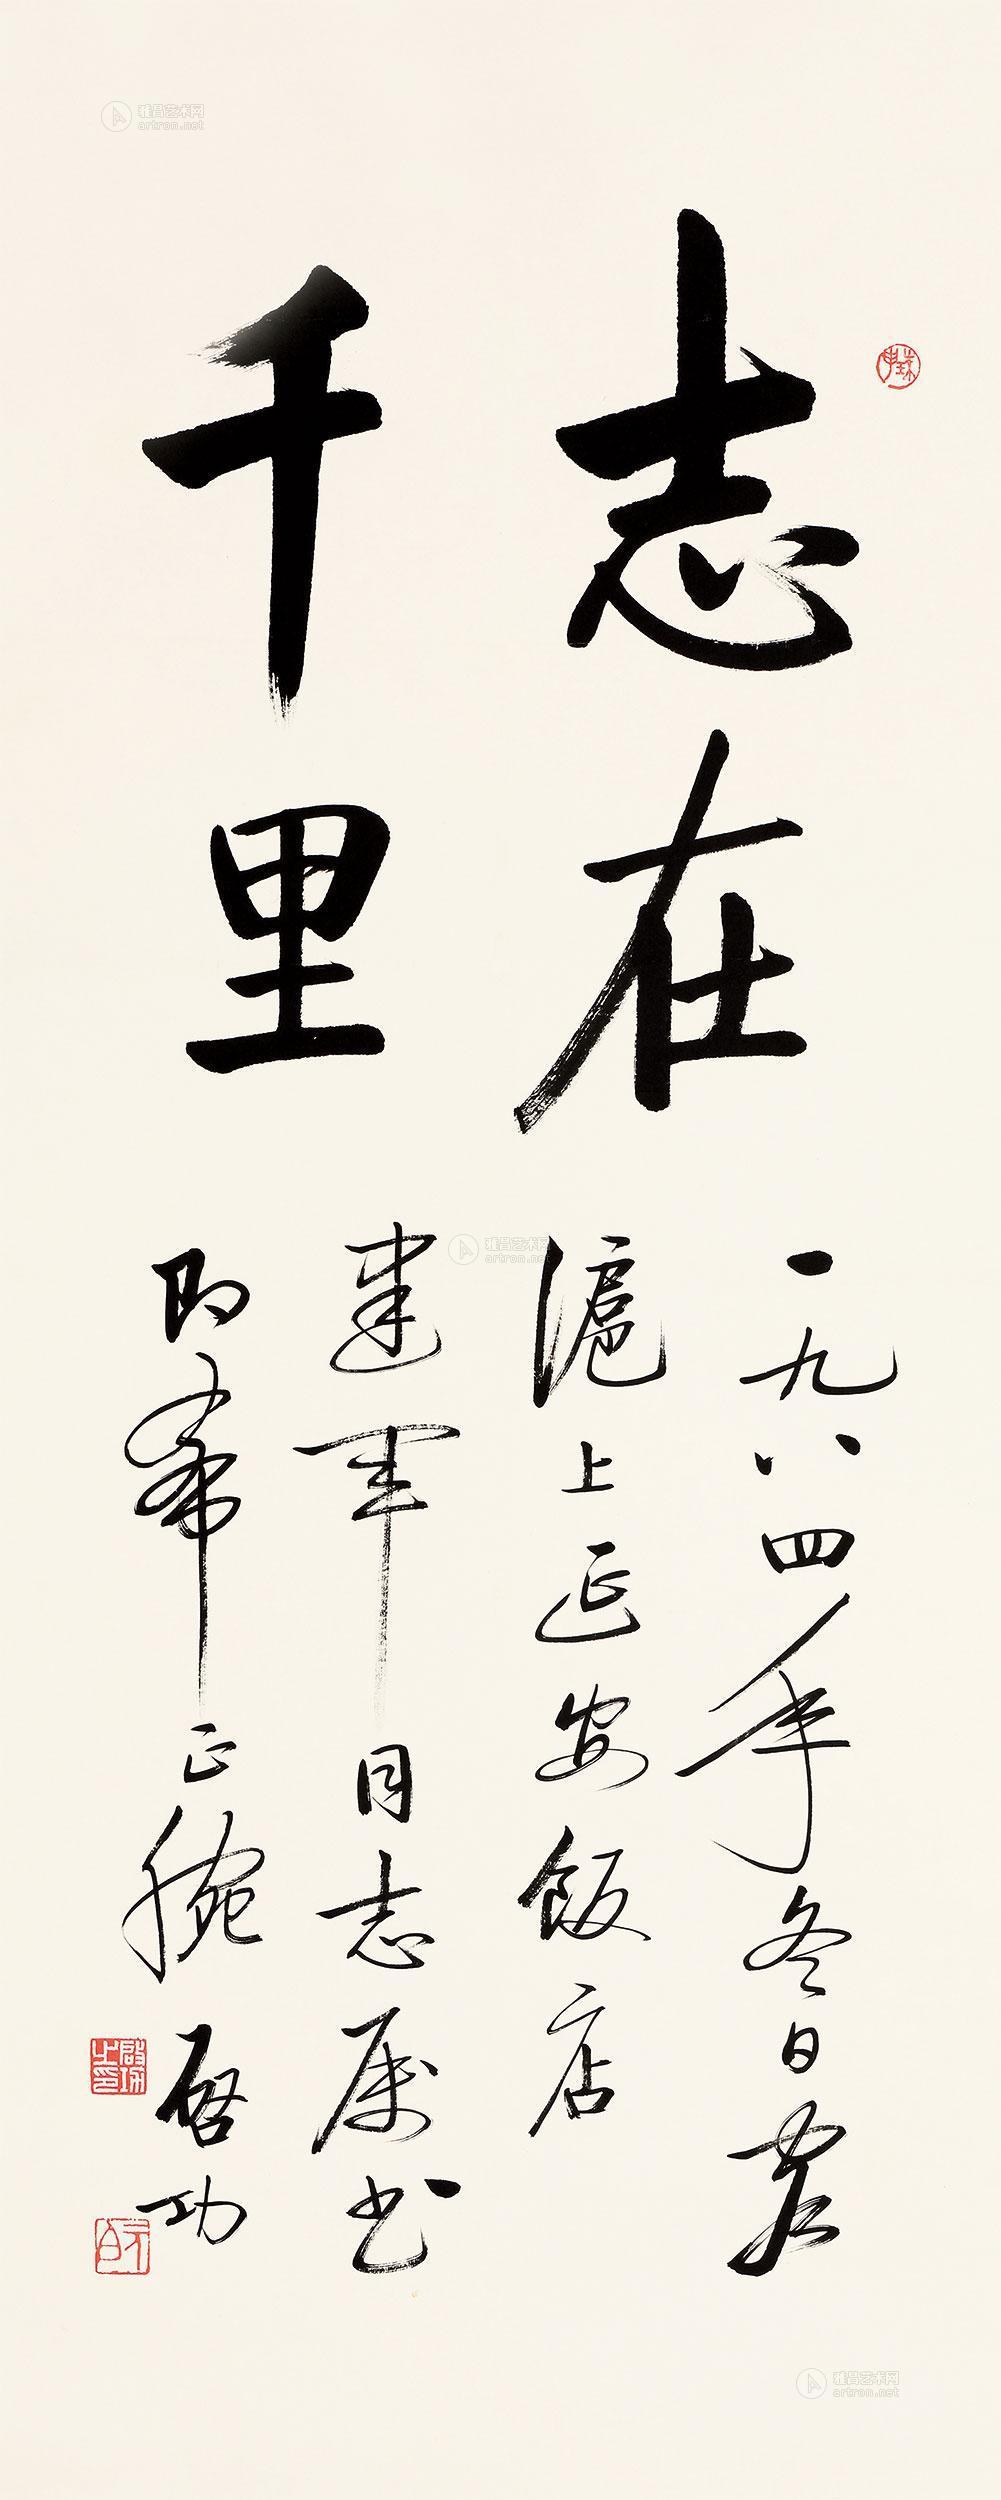 志在
千里
一九八四年冬日客
滬上延安飯店
建軍同志属书
即希正腕 启功
啟功之印
元白
雅昌艺术网
artron.net
雅昌艺术网
artron.net
雅昌艺术网
artron.net